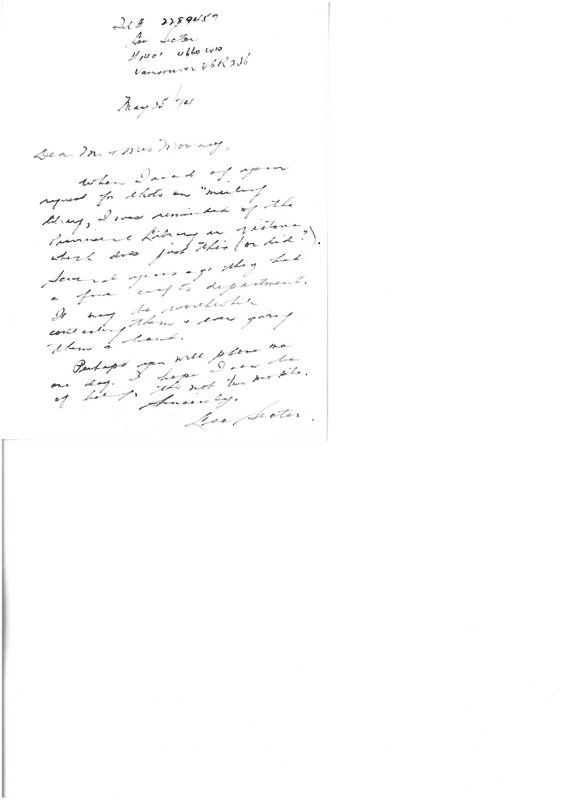 Tel # 2289457
Sector
#1401 4660 W10
Vancouver V6R 2J6
May 25
Dear Mr & Mrs
When I read of your
request for thots on "meeting
library, I was reminded of the
Provincial Library in Victoria
which does just this (or did?).
Several years ago they had
a fine crafts department.
It may be worthwhile
contacting them & even giving
them a hand.
Perhaps you will phone me
one day. I hope I can be
of help tho not too mobile.
Sincerely,
Sector.